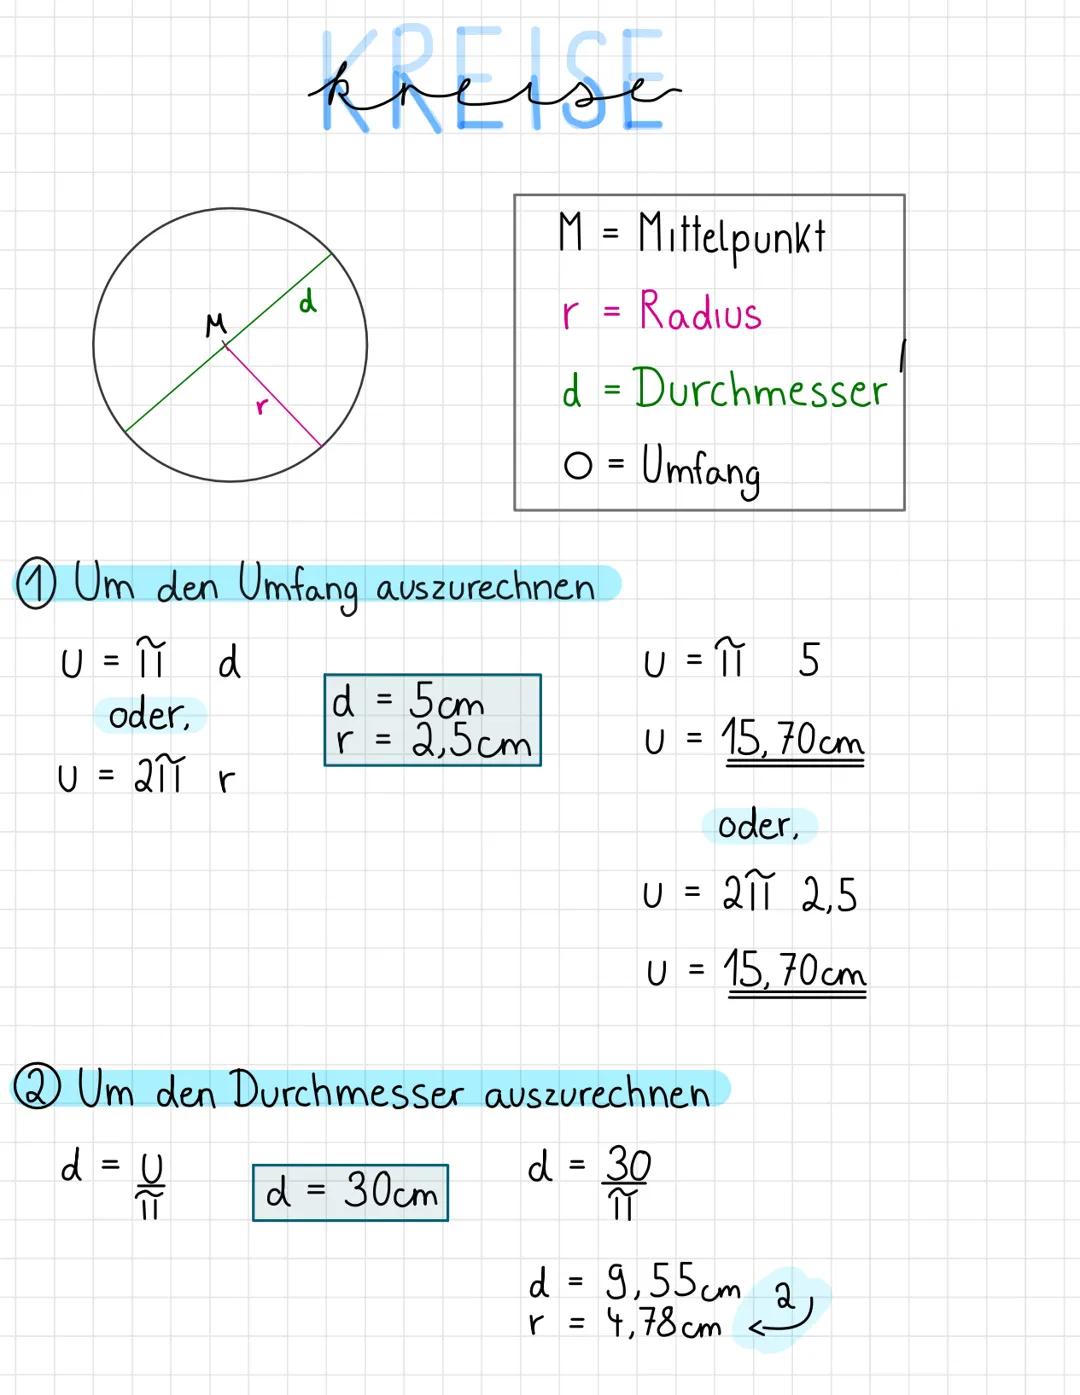 KREISE
kreise
M = Mittelpunkt
r = Radius
d = Durchmesser
O = Umfang
M
d
r
① Um den Umfang auszurechnen
U = π d
oder,
U = 2π r
d = 5cm
r = 2,5cm
U = π 5
U = 15,70cm
oder,
U = 2π 2,5
U = 15,70cm
② Um den Durchmesser auszurechnen
d = U
π
d = 30cm
d = 30
π
d = 9,55cm
r = 4,78cm
2